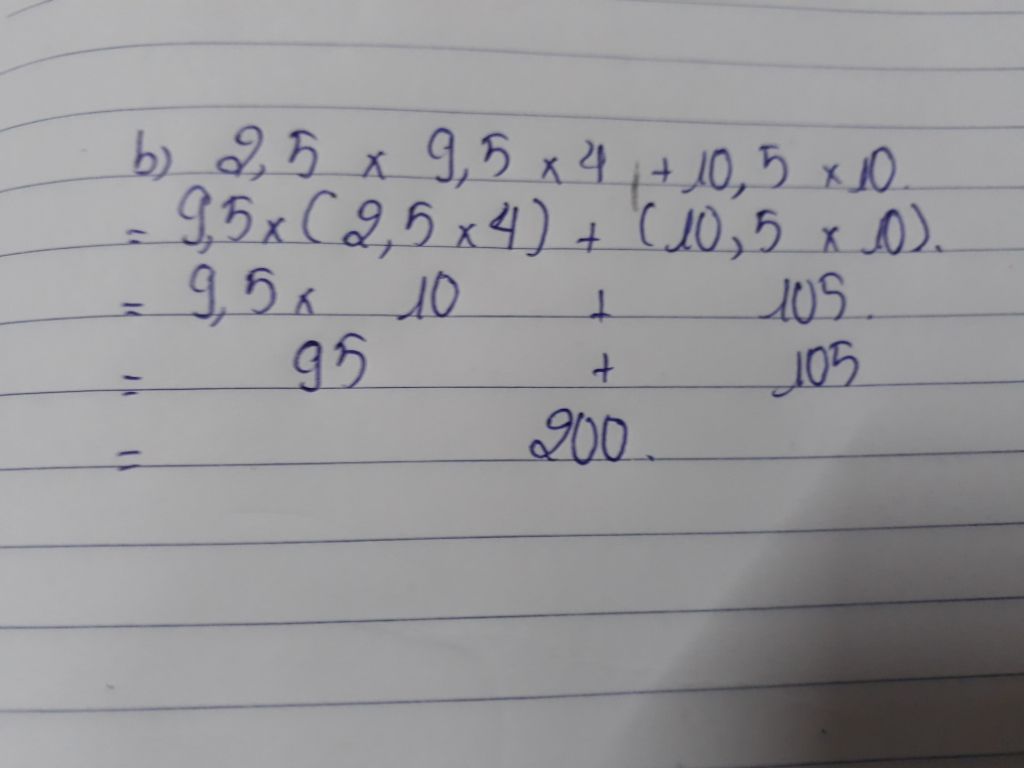 b) 2,5 x 9,5 x 4 + 10,5 x 10.
= 9,5 x ( 2,5 x 4 ) + ( 10,5 x 10 ).
= 9,5 x 10 + 105.
= 95 + 105
= 200.